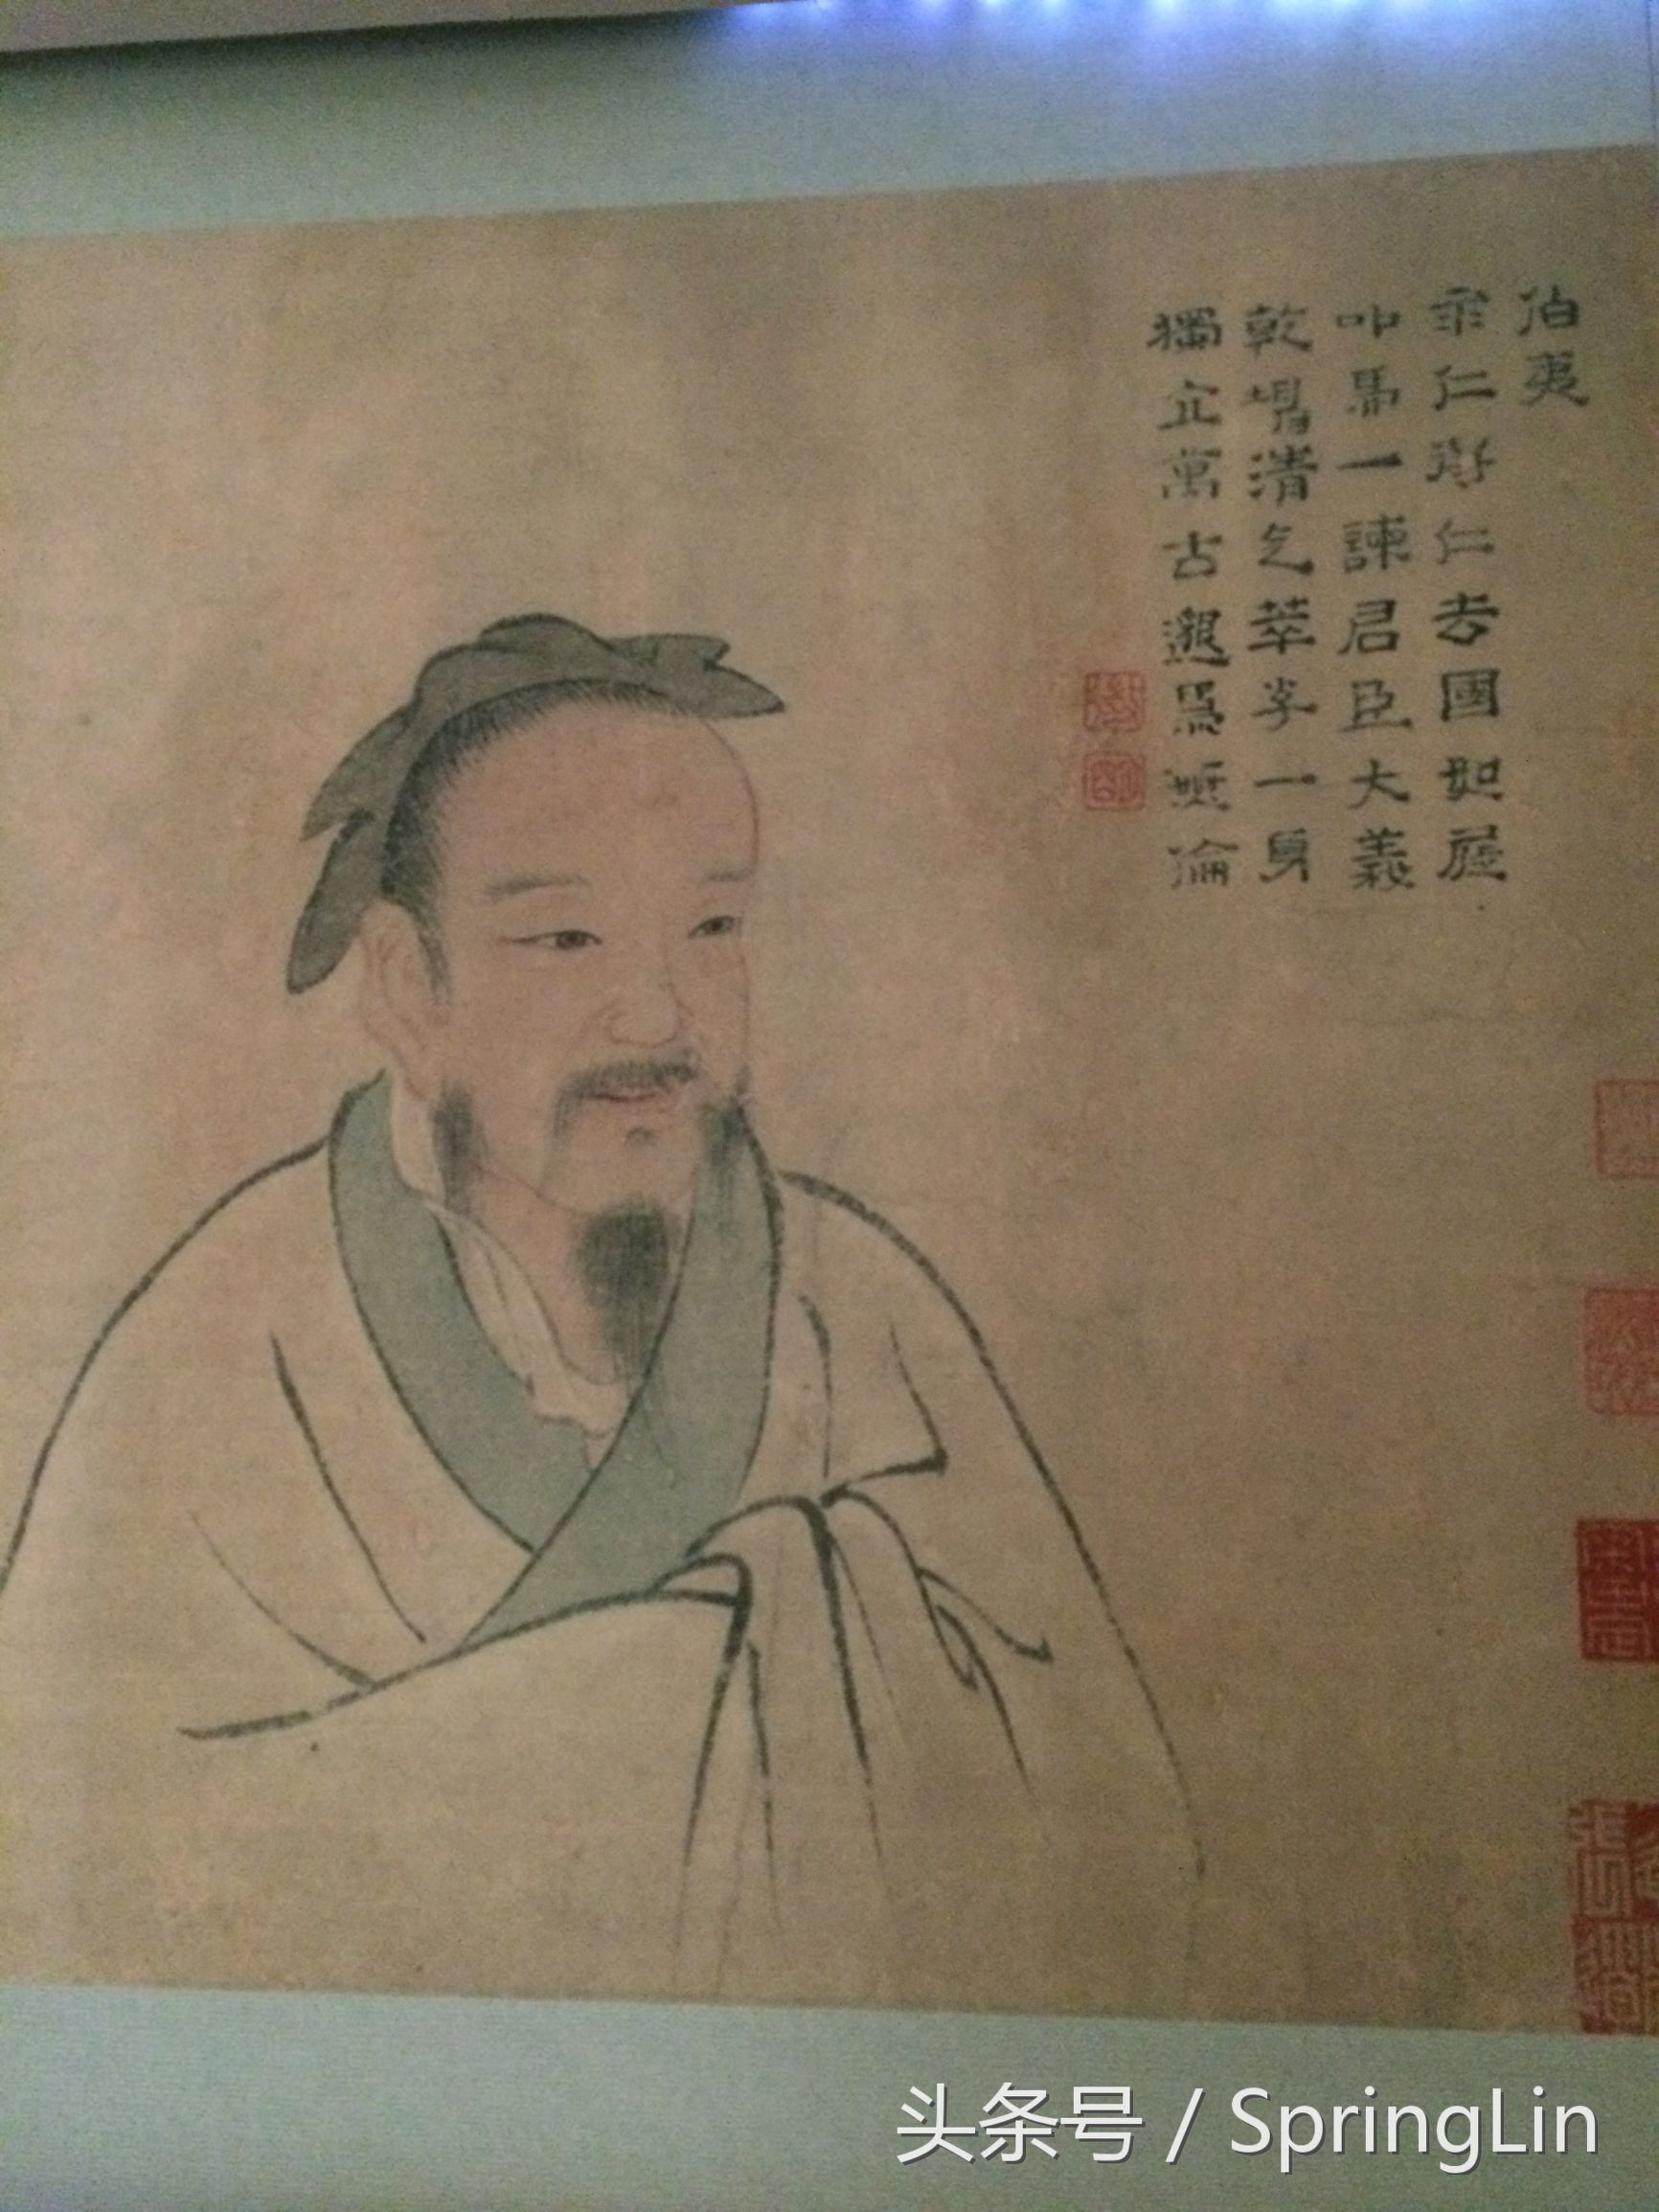 伯夷
求仁得仁去國如屣
叩馬一諫君臣大義
乾坤清气萃乎一身
獨立萬古邈焉無倫
头条号 / SpringLin